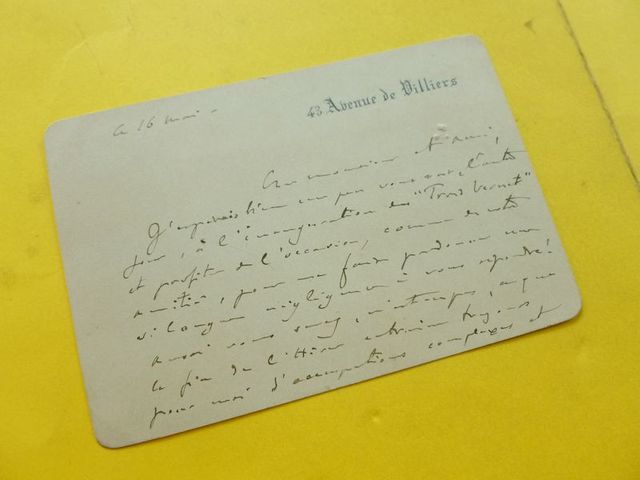 43 Avenue de Villiers
Ce 16 mai -
Cher Monsieur et Ami,
J'espérais bien un peu vous voir l'autre
jour, à l'inauguration des "Trois Vernet"
et profiter de l'occasion, comme de votre
amitié, pour me faire pardonner une
si longue négligence à vous répondre!
aussi vous savez, n'est-ce pas, ce que
la fin de l'Hiver entraine toujours
pour moi d'occupations complexes et